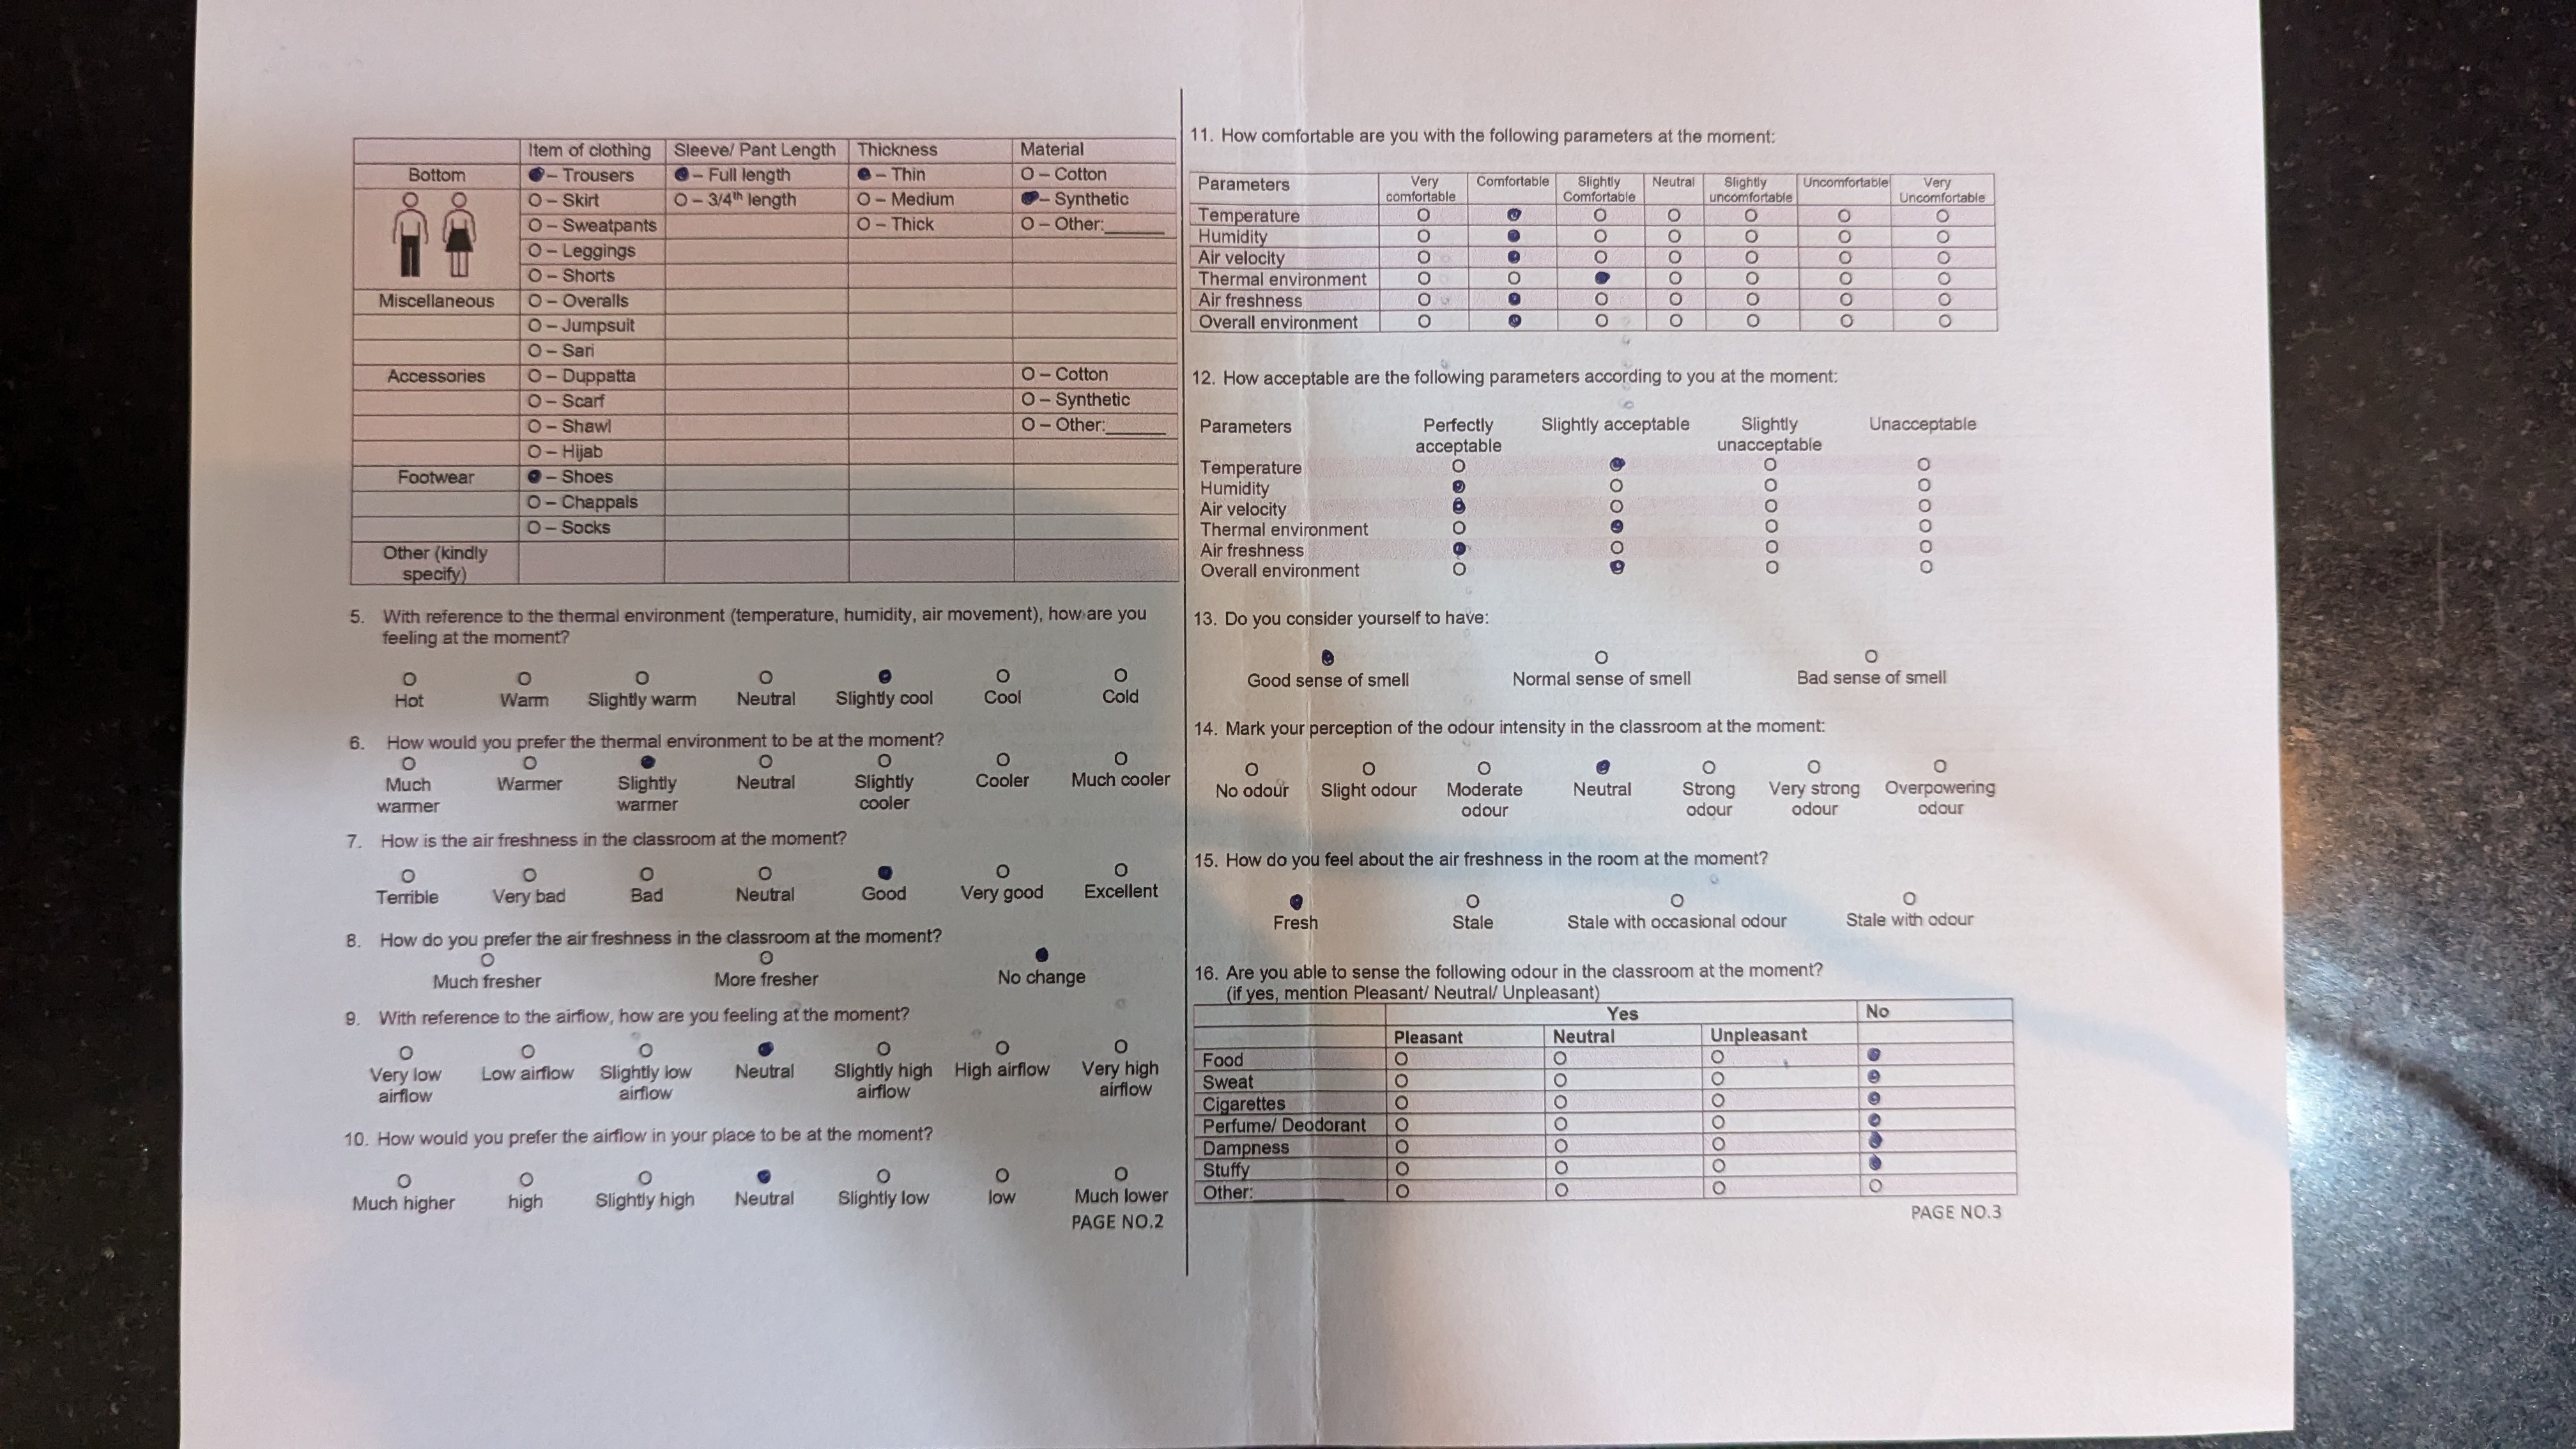 Item of clothing Sleeve/ Pant Length Thickness Material
Bottom – Trousers – Full length – Thin O – Cotton
O – Skirt O – 3/4th length O – Medium – Synthetic
O – Sweatpants O – Thick O – Other:______
O – Leggings
O – Shorts
Miscellaneous O – Overalls
O – Jumpsuit
O – Sari
Accessories O – Duppatta O – Cotton
O – Scarf O – Synthetic
O – Shawl O – Other:______
O – Hijab
Footwear – Shoes
O – Chappals
O – Socks
Other (kindly
specify)
5. With reference to the thermal environment (temperature, humidity, air movement), how are you
feeling at the moment?
Hot Warm Slightly warm Neutral Slightly cool Cool Cold
6. How would you prefer the thermal environment to be at the moment?
Much Warmer Slightly Neutral Slightly Cooler Much cooler
warmer warmer cooler
7. How is the air freshness in the classroom at the moment?
Terrible Very bad Bad Neutral Good Very good Excellent
8. How do you prefer the air freshness in the classroom at the moment?
Much fresher More fresher No change
9. With reference to the airflow, how are you feeling at the moment?
Very low Low airflow Slightly low Neutral Slightly high High airflow Very high
airflow airflow airflow airflow
10. How would you prefer the airflow in your place to be at the moment?
Much higher high Slightly high Neutral Slightly low low Much lower
PAGE NO.2
11. How comfortable are you with the following parameters at the moment:
Parameters Very Comfortable Slightly Neutral Slightly Uncomfortable Very
comfortable Comfortable uncomfortable Uncomfortable
Temperature
Humidity
Air velocity
Thermal environment
Air freshness
Overall environment
12. How acceptable are the following parameters according to you at the moment:
Parameters Perfectly Slightly acceptable Slightly Unacceptable
acceptable unacceptable
Temperature
Humidity
Air velocity
Thermal environment
Air freshness
Overall environment
13. Do you consider yourself to have:
Good sense of smell Normal sense of smell Bad sense of smell
14. Mark your perception of the odour intensity in the classroom at the moment:
No odour Slight odour Moderate Neutral Strong Very strong Overpowering
odour odour odour odour
15. How do you feel about the air freshness in the room at the moment?
Fresh Stale Stale with occasional odour Stale with odour
16. Are you able to sense the following odour in the classroom at the moment?
(if yes, mention Pleasant/ Neutral/ Unpleasant)
Yes No
Pleasant Neutral Unpleasant
Food
Sweat
Cigarettes
Perfume/ Deodorant
Dampness
Stuffy
Other:__________
PAGE NO.3